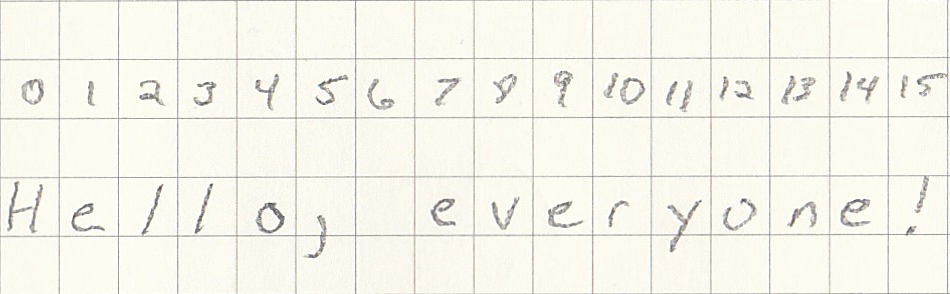 0 1 2 3 4 5 6 7 8 9 10 11 12 13 14 15
Hello, everyone!